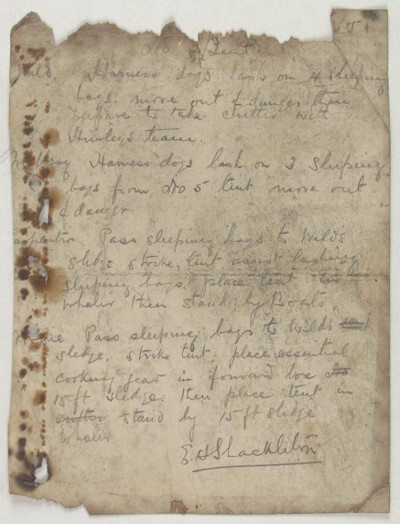 No 5 Tent
Wild. Harness dogs lash on 4 sleeping
bags. move out of danger then
prepare to take cutter with
Hurleys team.
Harness dogs lash on 3 sleeping
bags from No 5 tent move out
of danger
Carpentor Pass sleeping bags to Wilds
sledge strike, tent assist lashing
sleeping bags. place tent in
whaler then stand by Boats.
Pass sleeping bags to Wilds
sledge. strike tent. place essential
cooking gear in forward box
15 ft sledge. then place tent in
cutter stand by 15 ft sledge
whaler
E.H Shackleton